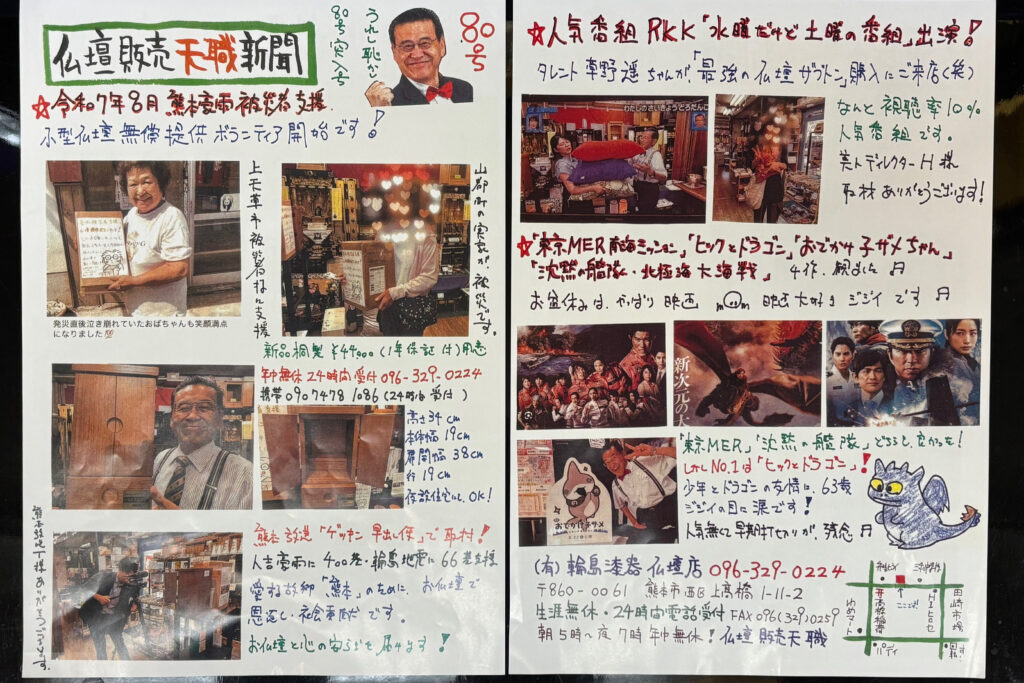 仏壇販売天職新聞
80号突入号
うれし恥かし
80号
☆令和7年8月 熊本豪雨被災者支援
小型仏壇無償提供ボランティア開始です!
上天草市被災者様に支援
山都町の実家が被災です。
発災直後泣き崩れていたおばちゃんも笑顔満点
になりました💯
新品桐製¥44,000(1年保証付)用意
年中無休24時間受付096-329-0224
携帯09074781086(24時間受付)
高さ34cm
本体幅19cm
扉開幅38cm
行19cm
仮設住宅にOK!
熊本放送「ゲツキン早出し便」で取材!
人吉豪雨に400基・輪島地震に66基支援
愛する故郷「熊本」のために、お仏壇で
恩返し・社会貢献です。
お仏壇と心の安らぎを届けます!
☆人気番組RKK「水曜だけど土曜の番組」出演!
タレント草野遥ちゃんが「最強の仏壇ザブトン」購入にご来店(笑)
わたしのさいきょうどうぶつだんご
なんと視聴率10%
人気番組です。
美人ディレクターH様
取材ありがとうございます!
☆「東京MER南海ミッション」「ヒックとドラゴン」「おでかけ子ザメちゃん」
「沈黙の艦隊・北極海大海戦」4作、観ました♬
お盆休みは、やっぱり映画 m(_ _)m 映画大好きジジイです♬
新次元の
おでかけ子ザメ
「東京MER」「沈黙の艦隊」どちらも良かった!
しかしNo.1は「ヒックとドラゴン」!
少年とドラゴンの友情に、63歳
ジジイの目に涙です!
人気無くて早期打ち切りが、残念♬
(有)輪島漆器仏壇店096-329-0224
〒860-0061 熊本市西区上高橋1-11-2
生涯無休・24時間電話受付FAX096(329)0259
朝5時〜夜7時年中無休!仏壇販売天職
ここ!
高橋稲荷
ゆめマート
田崎市場